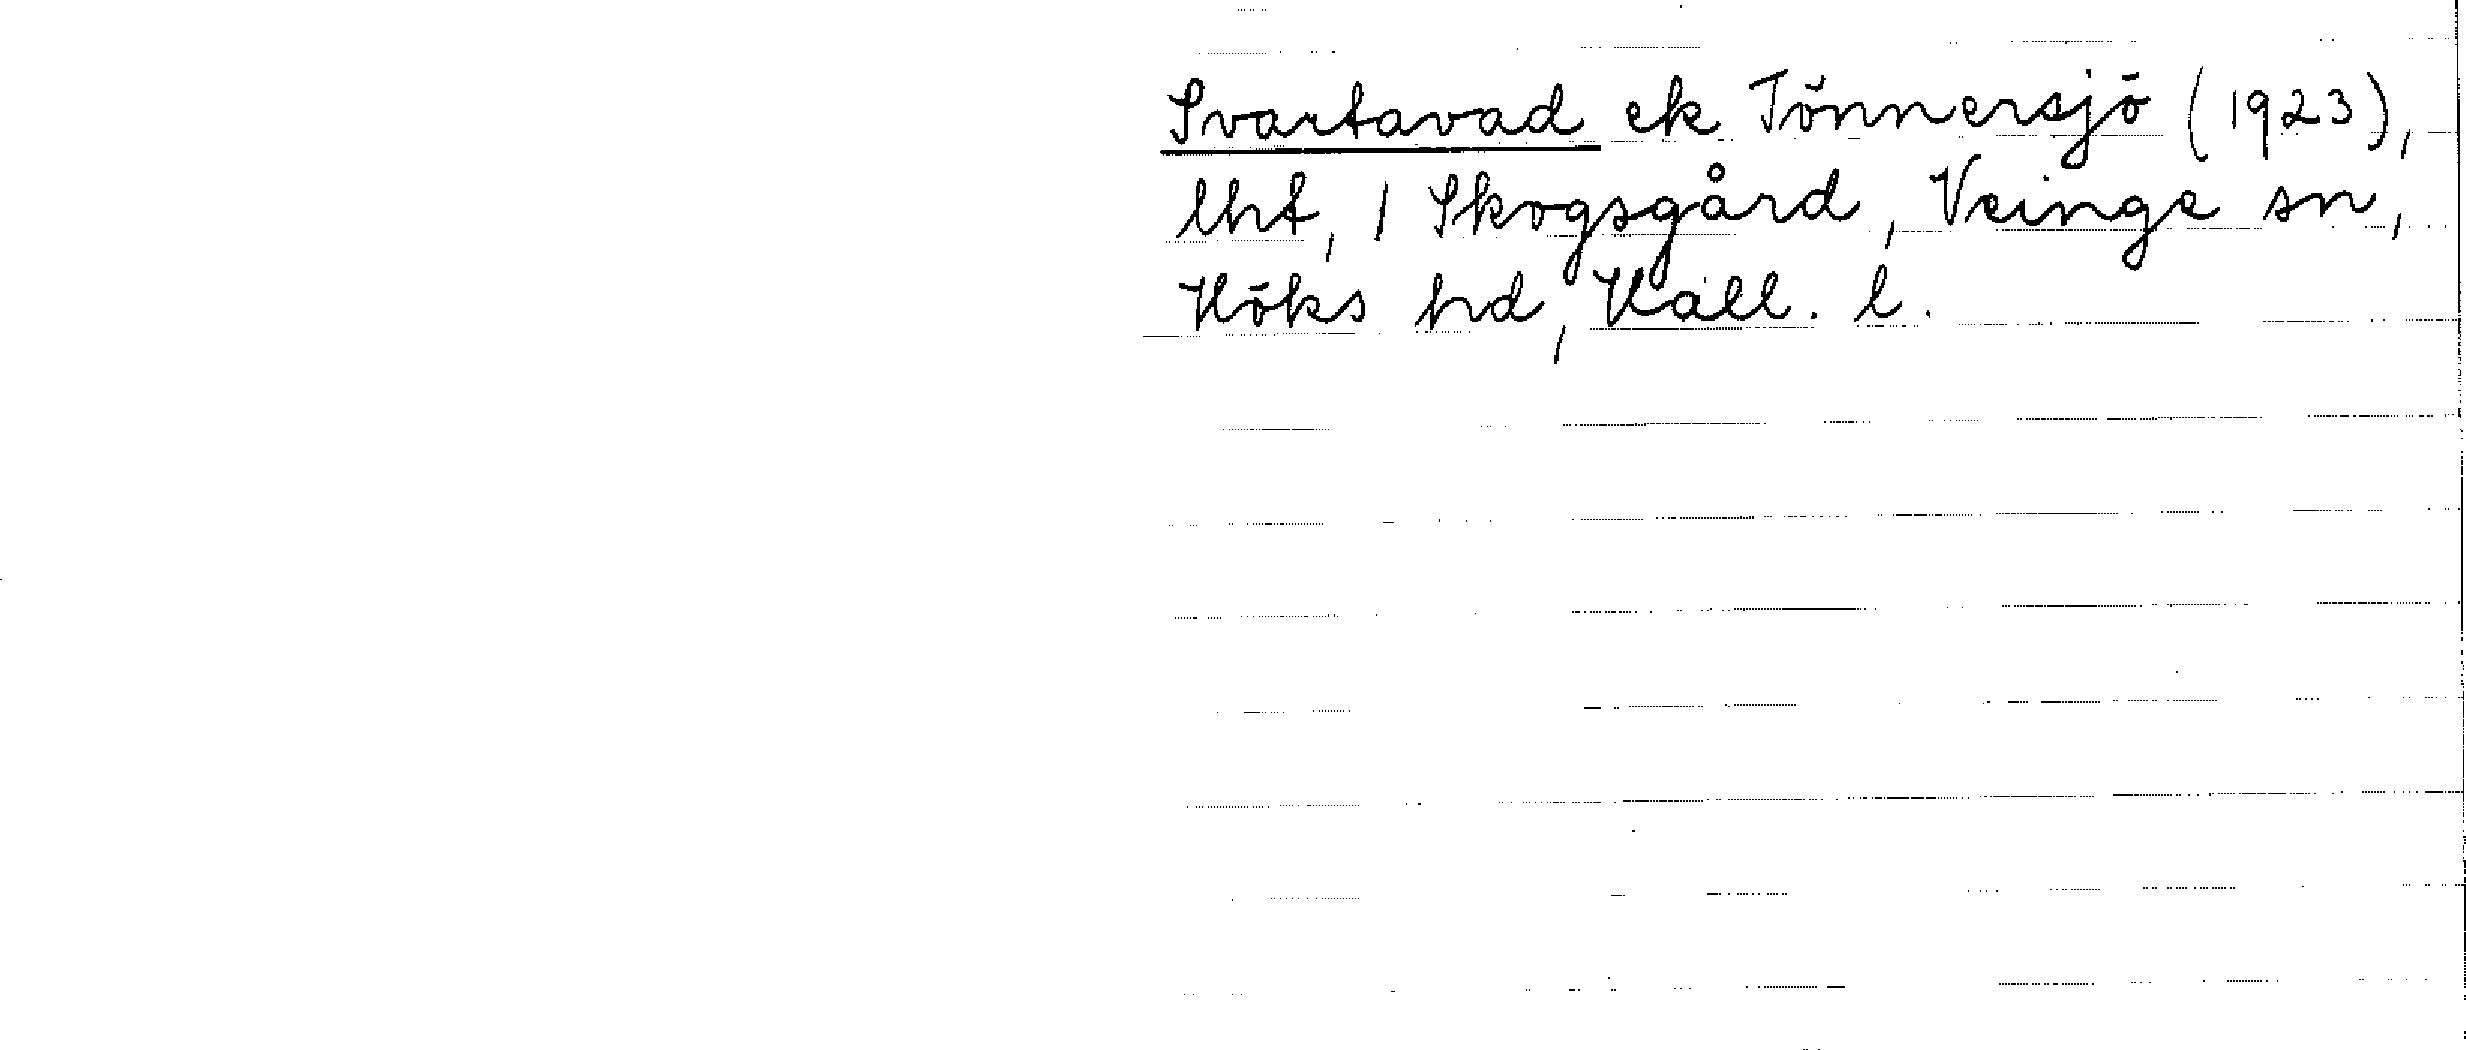 Svartavad ek Tönnersjö (1923),
lht, 1 Skogsgård, Veinge sn,
Höks hd, Hall. l.